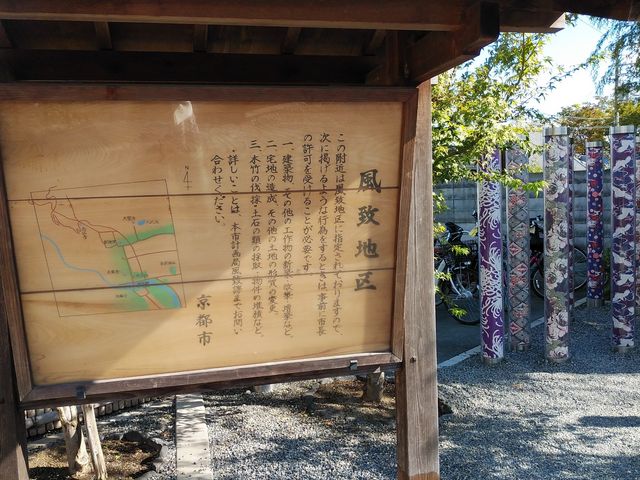 風致地区
この附近は風致地区に指定されておりますので、
次に掲げるような行為をするときは、事前に市長
の許可を受けることが必要です。
一、建築物、その他の工作物の新築、改築、増築など。
二、宅地の造成、その他の土地の形質の変更。
三、木竹の伐採・土石の類の採取・物件の堆積など。
・詳しいことは、本市計画局風致課までお問い
合わせください。
京都市
N